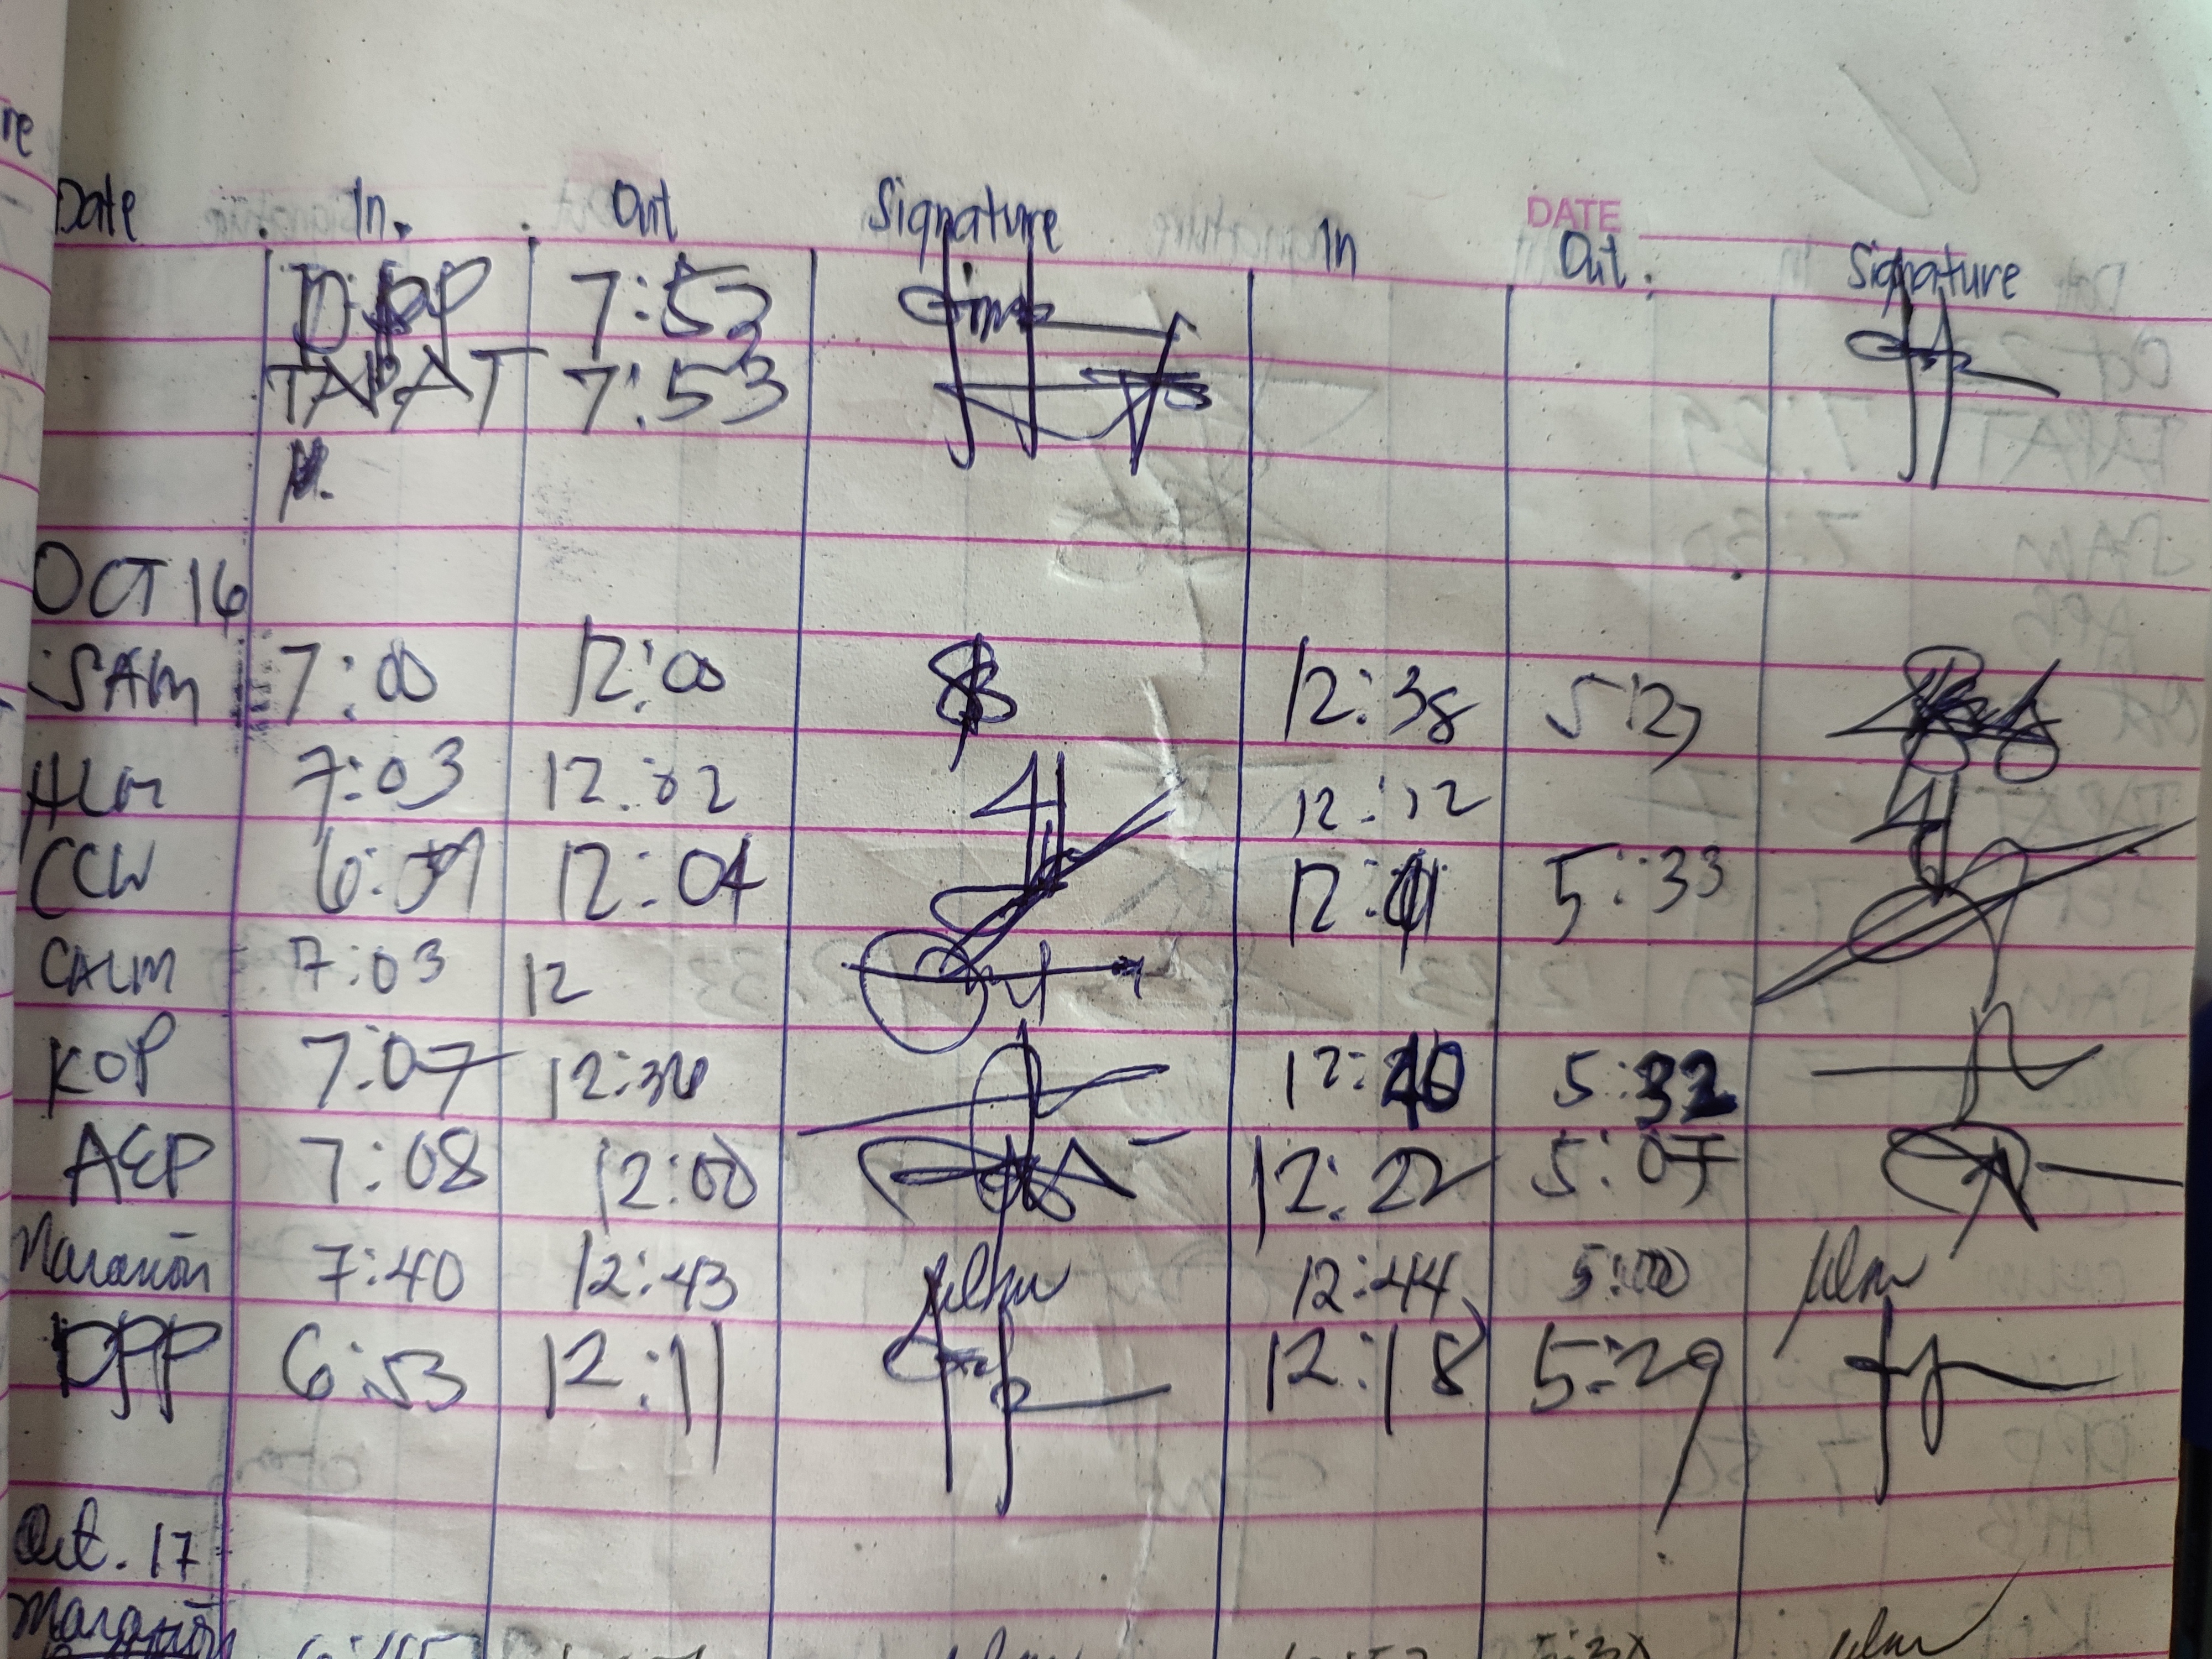 re
DATE
Date In. Out Signature In Out. Signature
DPP 7:53
TAPAT 7:53
OCT 16
SAM 7:00 12:00 12:38 5:27
ALM 7:03 12:02 12:12
CCW 12:04 5:33
CALM 7:03 12
KOP 7:07 12:36 12:40 5:32
AEP 7:08 12:00 12:22 5:07
Marañon 7:40 12:43 12:44 5:00
DPP 6:53 12:11 12:18 5:29
Oct. 17
Marañon